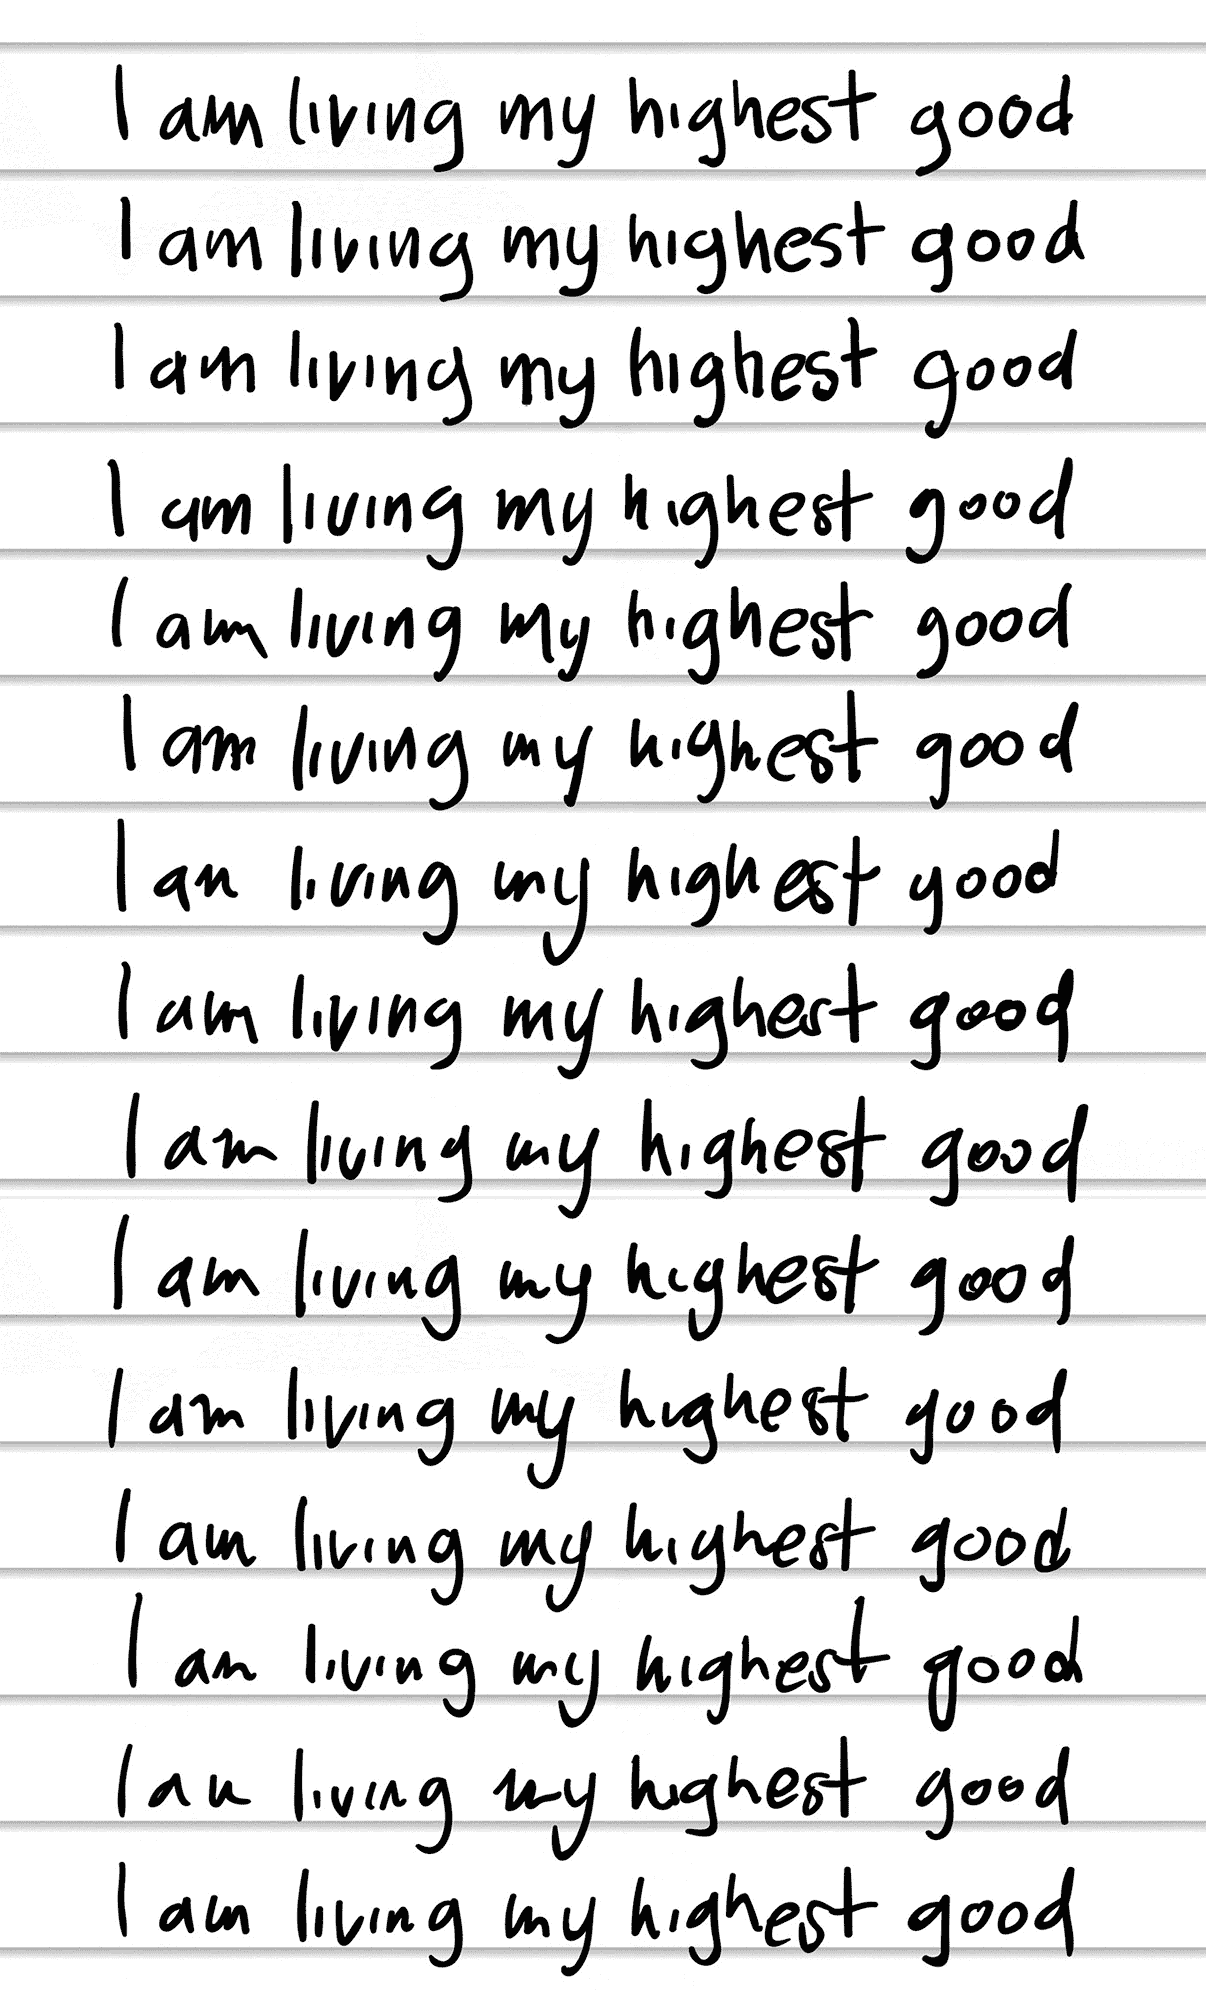 I am living my highest good
I am living my highest good
I am living my highest good
I am living my highest good
I am living my highest good
I am living my highest good
I an living my highest good
I am living my highest good
I am living my highest good
I am living my highest good
I am living my highest good
I am living my highest good
I am living my highest good
I an living my highest good
I am living my highest good